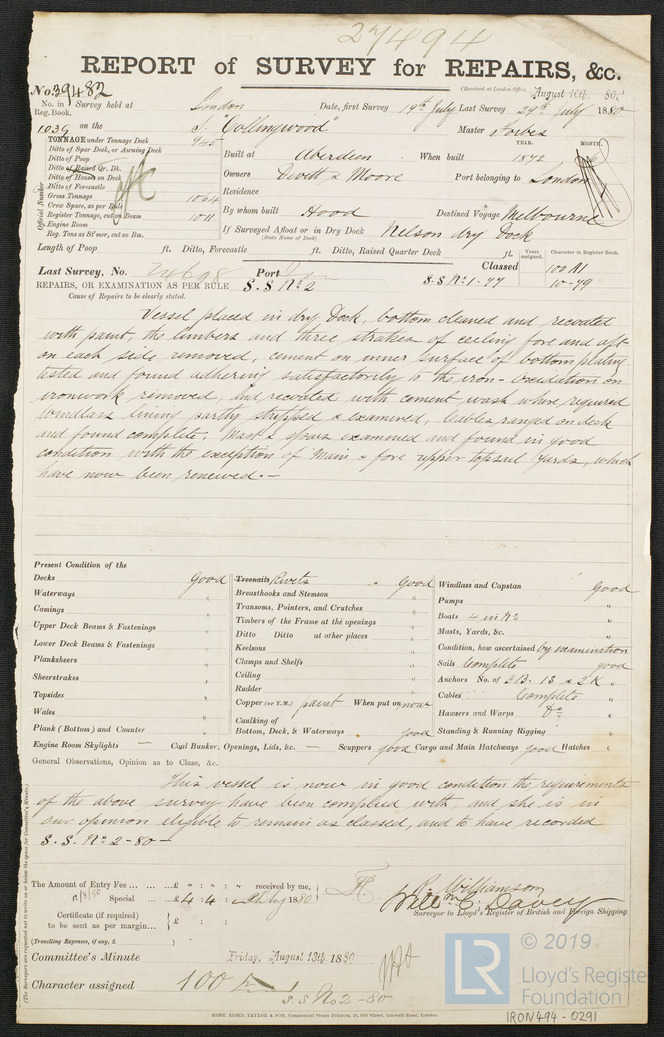 27494
REPORT of SURVEY for REPAIRS, &c.
(Received at London Office, August 10th, 80.)
No. 39482
No. in Reg. Book. Survey held at London Date, first Survey 19th July Last Survey 29th July 1880
1039 on the S. "Collingwood" Master Forbes
TONNAGE under Tonnage Deck 945
Ditto of Spar Deck, or Awning Deck
Ditto of Poop
Ditto of Raised Qr. Dk.
Ditto of Houses on Deck
Ditto of Forecastle
Gross Tonnage 1064
Crew Space, as per Rule
Register Tonnage, cut on Beam 1011
Engine Room
Reg. Tons as St'mer, cut on Bm.
Official Number
YEAR. MONTH.
Built at Aberdeen When built 1872
Owners Devitt & Moore Port belonging to London
Residence
By whom built Hood Destined Voyage Melbourne
If Surveyed Afloat or in Dry Dock Nelson dry Dock
(State Name of Dock)
Length of Poop ft. Ditto, Forecastle ft. Ditto, Raised Quarter Deck ft.
Years assigned. Character in Register Book.
Last Survey, No. 24698 Port Lon Classed 100 A1
REPAIRS, OR EXAMINATION AS PER RULE S.S. No 2 S.S. No 1-77 10-79
Cause of Repairs to be clearly stated.
Vessel placed in dry Dock, bottom cleaned and recoated
with paint, the limbers and three strakes of ceiling fore and aft
on each side removed, cement on inner surface of bottom plating
tested and found adhering satisfactorily to the iron - Oxidation on
ironwork removed, and recoated with cement wash where required
windlass lining partly stripped & examined, Cables ranged on deck
and found complete. Mast & spars examined and found in good
condition with the exception of main & fore upper topsail yards, which
have now been renewed. -
Present Condition of the
Decks good
Waterways "
Comings "
Upper Deck Beams & Fastenings "
Lower Deck Beams & Fastenings "
Planksheers "
Sheerstrakes "
Topsides "
Wales "
Plank (Bottom) and Counter "
Treenails Rivets good
Breasthooks and Stemson "
Transoms, Pointers, and Crutches "
Timbers of the Frame at the openings "
Ditto Ditto at other places "
Keelsons "
Clamps and Shelfs "
Ceiling "
Rudder "
Copper (or Y.M.) paint When put on now
Caulking of
Bottom, Deck, & Waterways good
Windlass and Capstan good
Pumps "
Boats 4 in No "
Masts, Yards, &c. "
Condition, how ascertained by examination
Sails Complete good
Anchors No. of 3B. 1S & 2K "
Cables Complete "
Hawsers and Warps Do "
Standing & Running Rigging "
Engine Room Skylights — Coal Bunker, Openings, Lids, &c. — Scuppers good Cargo and Main Hatchways good Hatches "
General Observations, Opinion as to Class, &c.
This vessel is now in good condition the requirements
of the above survey have been complied with, and she is in
our opinion eligible to remain as classed, and to have recorded
S.S. No 2-80 -
The Amount of Entry Fee ... £ " : " : " received by me,
Special ... £ 4 : 4 : 1880
Certificate (if required) to be sent as per margin... £
(Travelling Expenses, if any, £ )
R. Williamson
Will. C. Davey
Surveyor to Lloyd's Register of British and Foreign Shipping
Committee's Minute Friday, August 13th, 1880
Character assigned 100
S S No 2-80
© 2019
LR
Lloyd's Register
Foundation
IRON494-0291